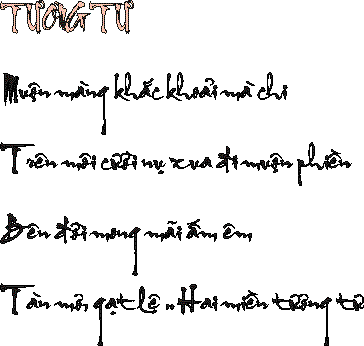 TƯƠNG TƯ
Muộn màng khắc khoải mà chi
Trên môi cười nụ xưa đi muộn phiền
Bên đời mong mãi ấm êm
Tàn môi gạt lệ .. Hai miền tương tư